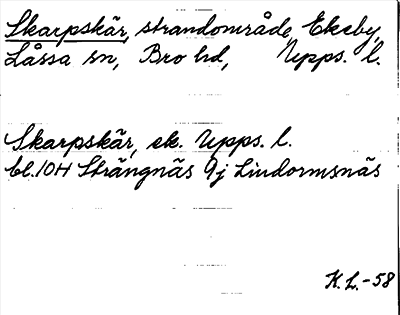 Skarpskär, strandområde, Ekeby,
Låssa sn, Bro hd, Upps. l.
Skarpskär, ek. Upps. l.
bl. 10H Strängnäs 9j Lindormsnäs
K.L.-58